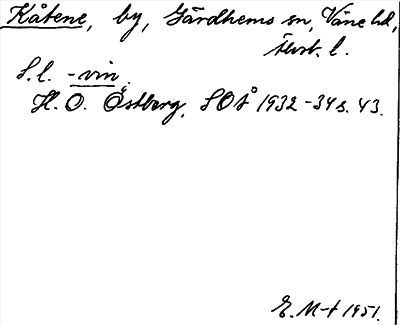 Kåtene, by, Gärdhems sn, Väne hd,
Älvsb. l.
S. l. -vin.
H. O. Östberg, SOÅ 1932-34 s. 43.
E. M-t 1951.